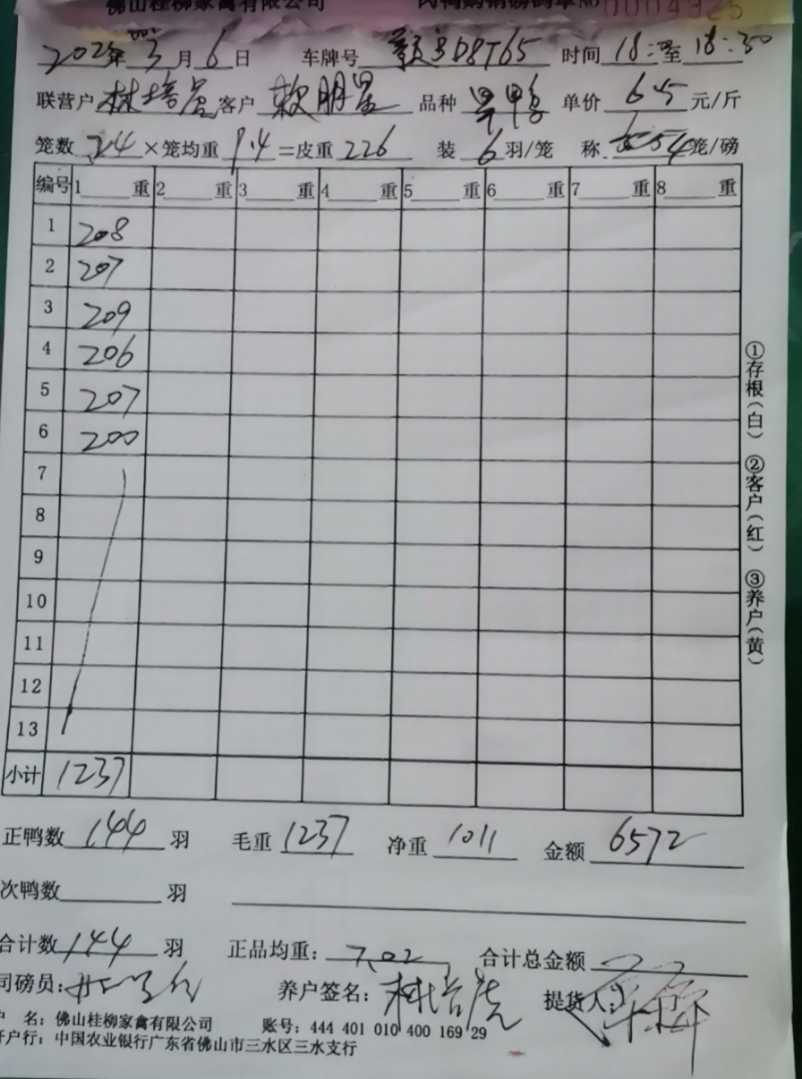 佛山桂柳家禽有限公司 №0004325
2025年3月6日 车牌号 D8T65 时间18: 至18:30
联营户 林培 客户 软明星 品种 鸭 单价 6.5 元/斤
笼数 24 ×笼均重 9.4 =皮重 226 装 6 羽/笼 称 4 笼/磅
编号 1 重 2 重 3 重 4 重 5 重 6 重 7 重 8 重
1 208
2 207
3 209
4 206
5 207
6 200
7
8
9
10
11
12
13
小计 1237
①存根(白) ②客户(红) ③养户(黄)
正鸭数 144 羽 毛重 1237 净重 1011 金额 6572
次鸭数 羽
合计数 144 羽 正品均重: 7.02 合计总金额
司磅员: 养户签名: 林培 提货人:
户 名: 佛山桂柳家禽有限公司 账号: 444 401 010 400 169 29
开户行: 中国农业银行广东省佛山市三水区三水支行